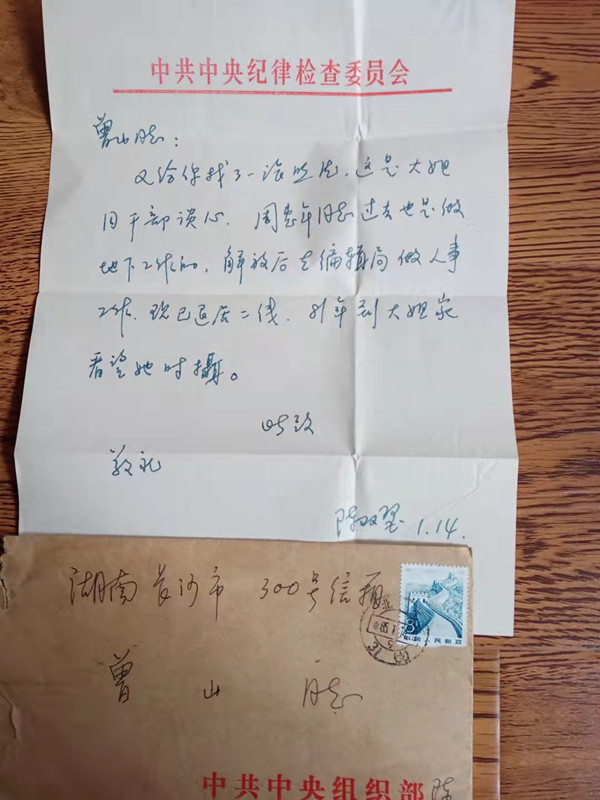 中共中央纪律检查委员会
曾山同志：
又给你找了一张照片，这是大姐
同干部谈心．周惠年同志过去也是做
地下工作的，解放后在编辑局做人事
工作．现已退居二线．81年到大姐家
看望她时摄。
此致
敬礼
陈双璧 1.14.
湖南长沙市 300号信箱
8
中国人民邮政
曾山 同志
中共中央组织部 陈